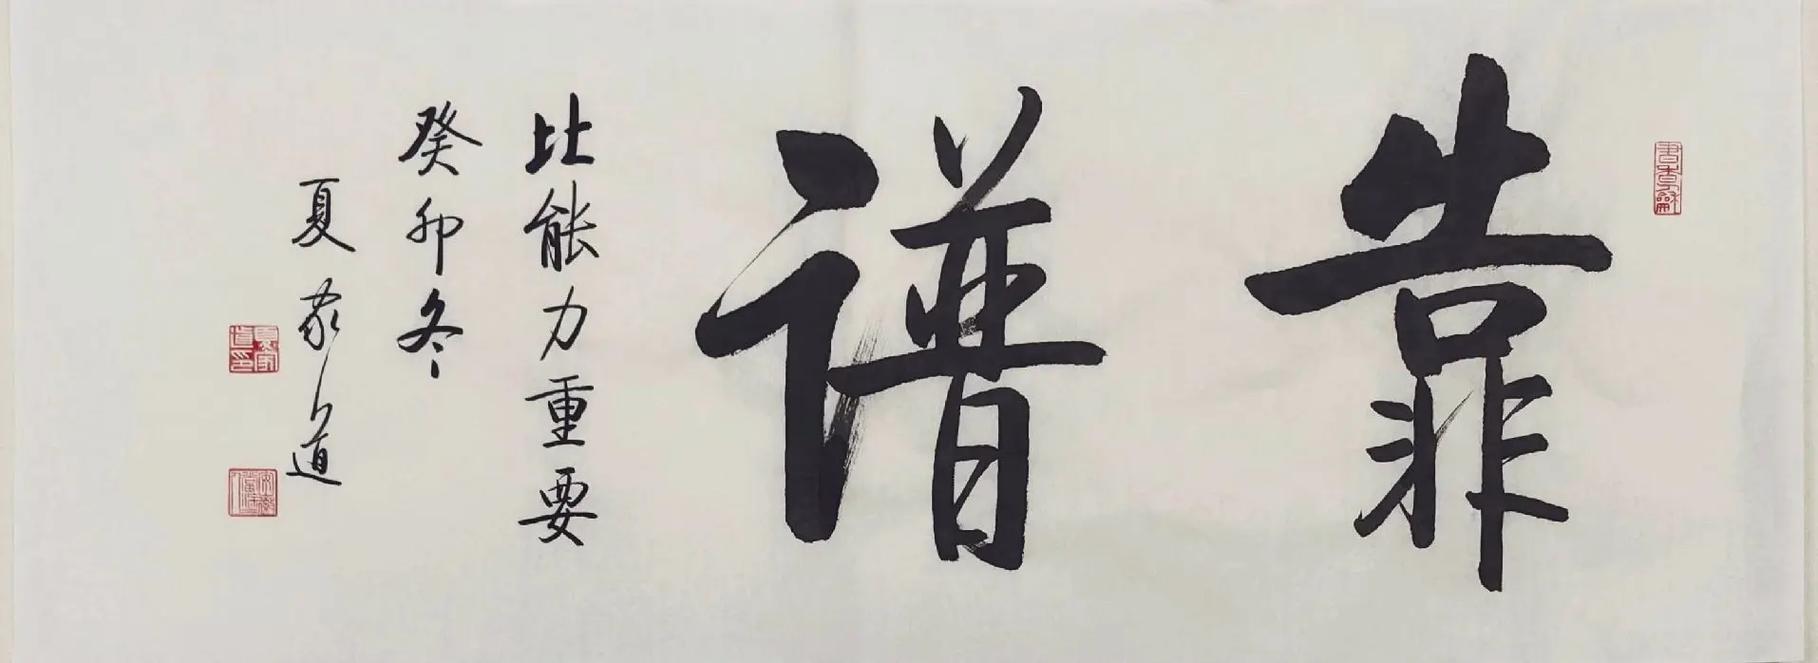 靠谱
比能力重要
癸卯冬
夏家道